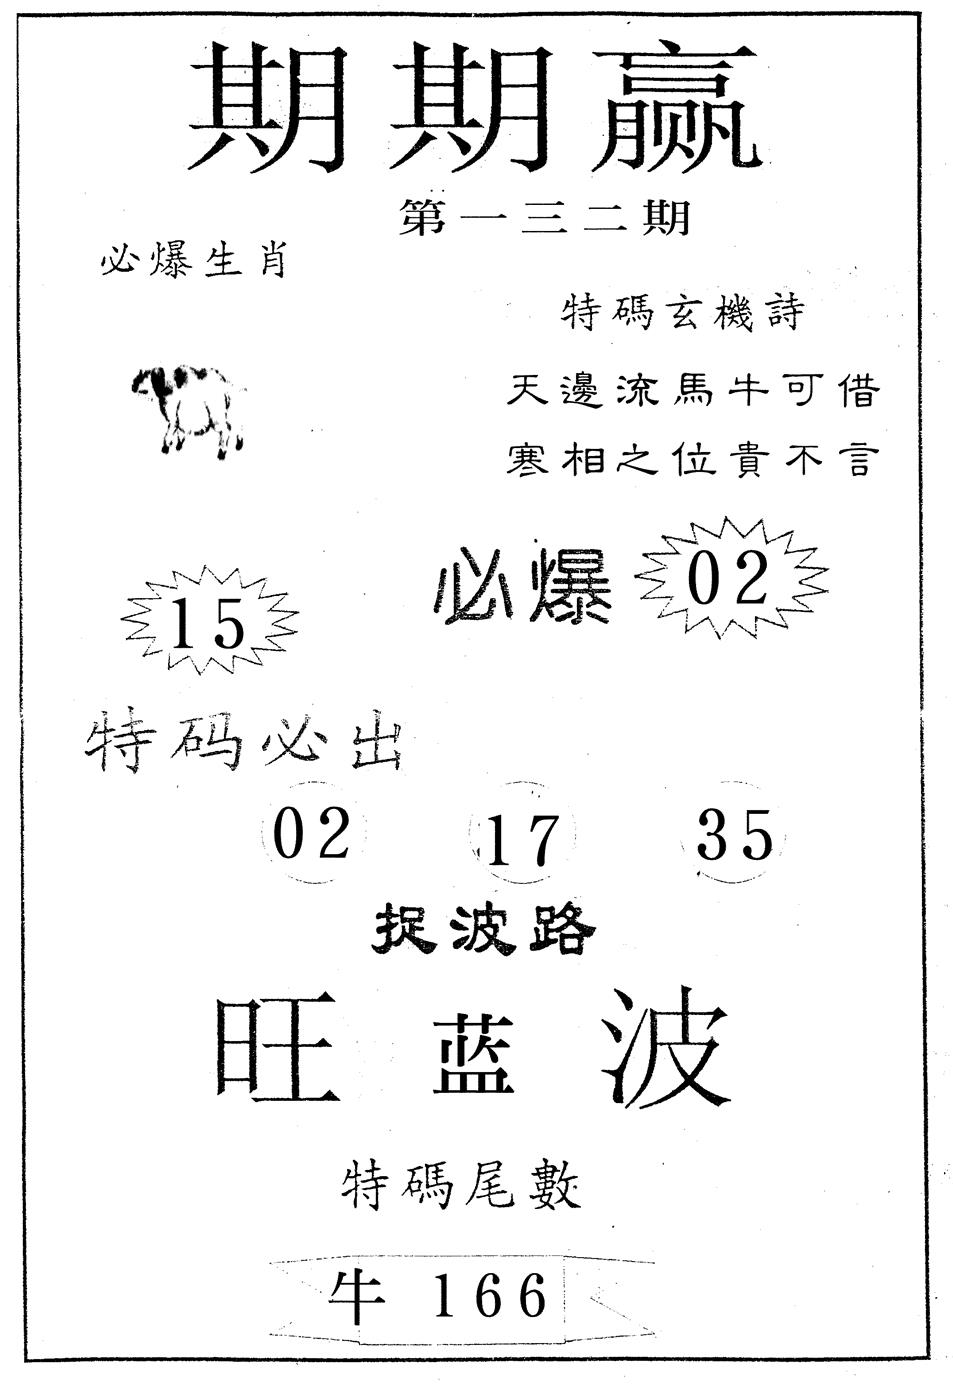 期期赢
第一三二期
必爆生肖
特碼玄機詩
天邊流馬牛可借
寒相之位貴不言
必爆 02
15
特码必出
02 17 35
捉波路
旺蓝波
特碼尾數
牛 166